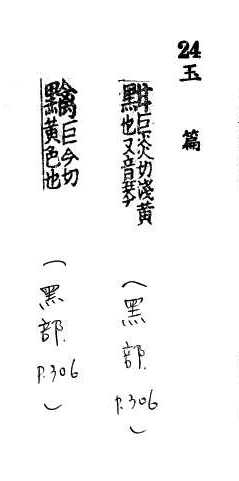 24 玉篇
黚巨炎切淺黄
也又音琴
(黑部 P.306)
巨今切
黄色也
(黑部 P.306)